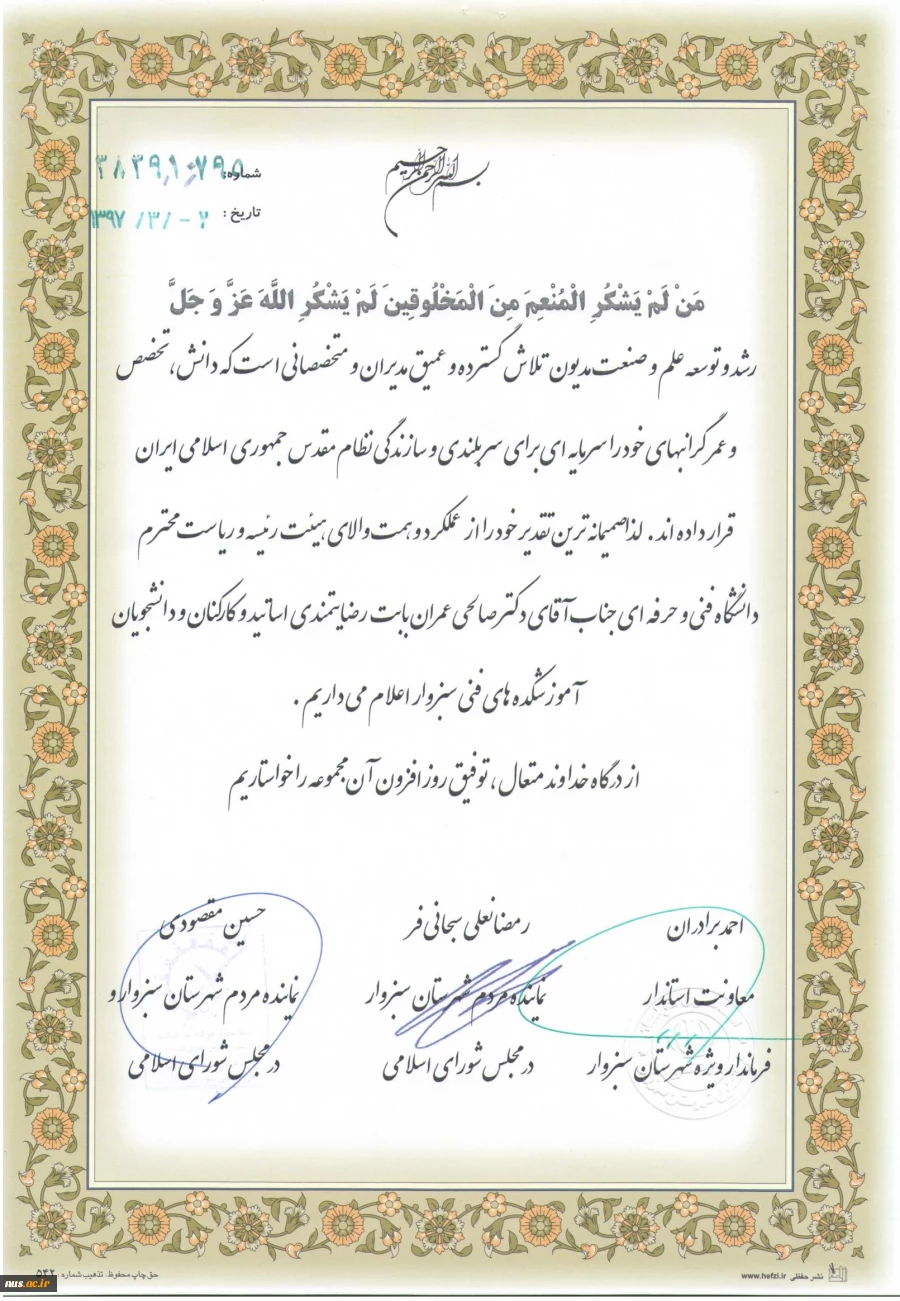 بسم الله الرحمن الرحیم
شماره:
تاریخ : ۱۳۹۷/۳/-۲
مَنْ لَمْ يَشْكُرِ الْمُنْعِمَ مِنَ الْمَخْلُوقِينَ لَمْ يَشْكُرِ اللَّهَ عَزَّ وَ جَلَّ
رشد و توسعه علم و صنعت مدیون تلاش گسترده و عمیق مدیران و متخصصانی است که دانش، تخصص
و عمر گرانبهای خود را سرمایه ای برای سربلندی و سازندگی نظام مقدس جمهوری اسلامی ایران
قرار داده اند. لذا صمیمانه ترین تقدیر خود را از عملکرد و همت والای هیئت رئیسه و ریاست محترم
دانشگاه فنی و حرفه ای جناب آقای دکتر صالحی عمران بابت رضایتمندی اساتید و کارکنان و دانشجویان
آموزشکده های فنی سبزوار اعلام می داریم .
از درگاه خداوند متعال، توفیق روز افزون آن مجموعه را خواستاریم
احمد برادران
معاونت استاندار
فرماندار ویژه شهرستان سبزوار
رمضانعلی سبحانی فر
نماینده مردم شهرستان سبزوار
در مجلس شورای اسلامی
حسین مقصودی
نماینده مردم شهرستان سبزوار و
در مجلس شورای اسلامی
نشر حفظی www.hefzi.ir
حق چاپ محفوظ. تذهیب شماره : ۵۴۲
nus.ac.ir